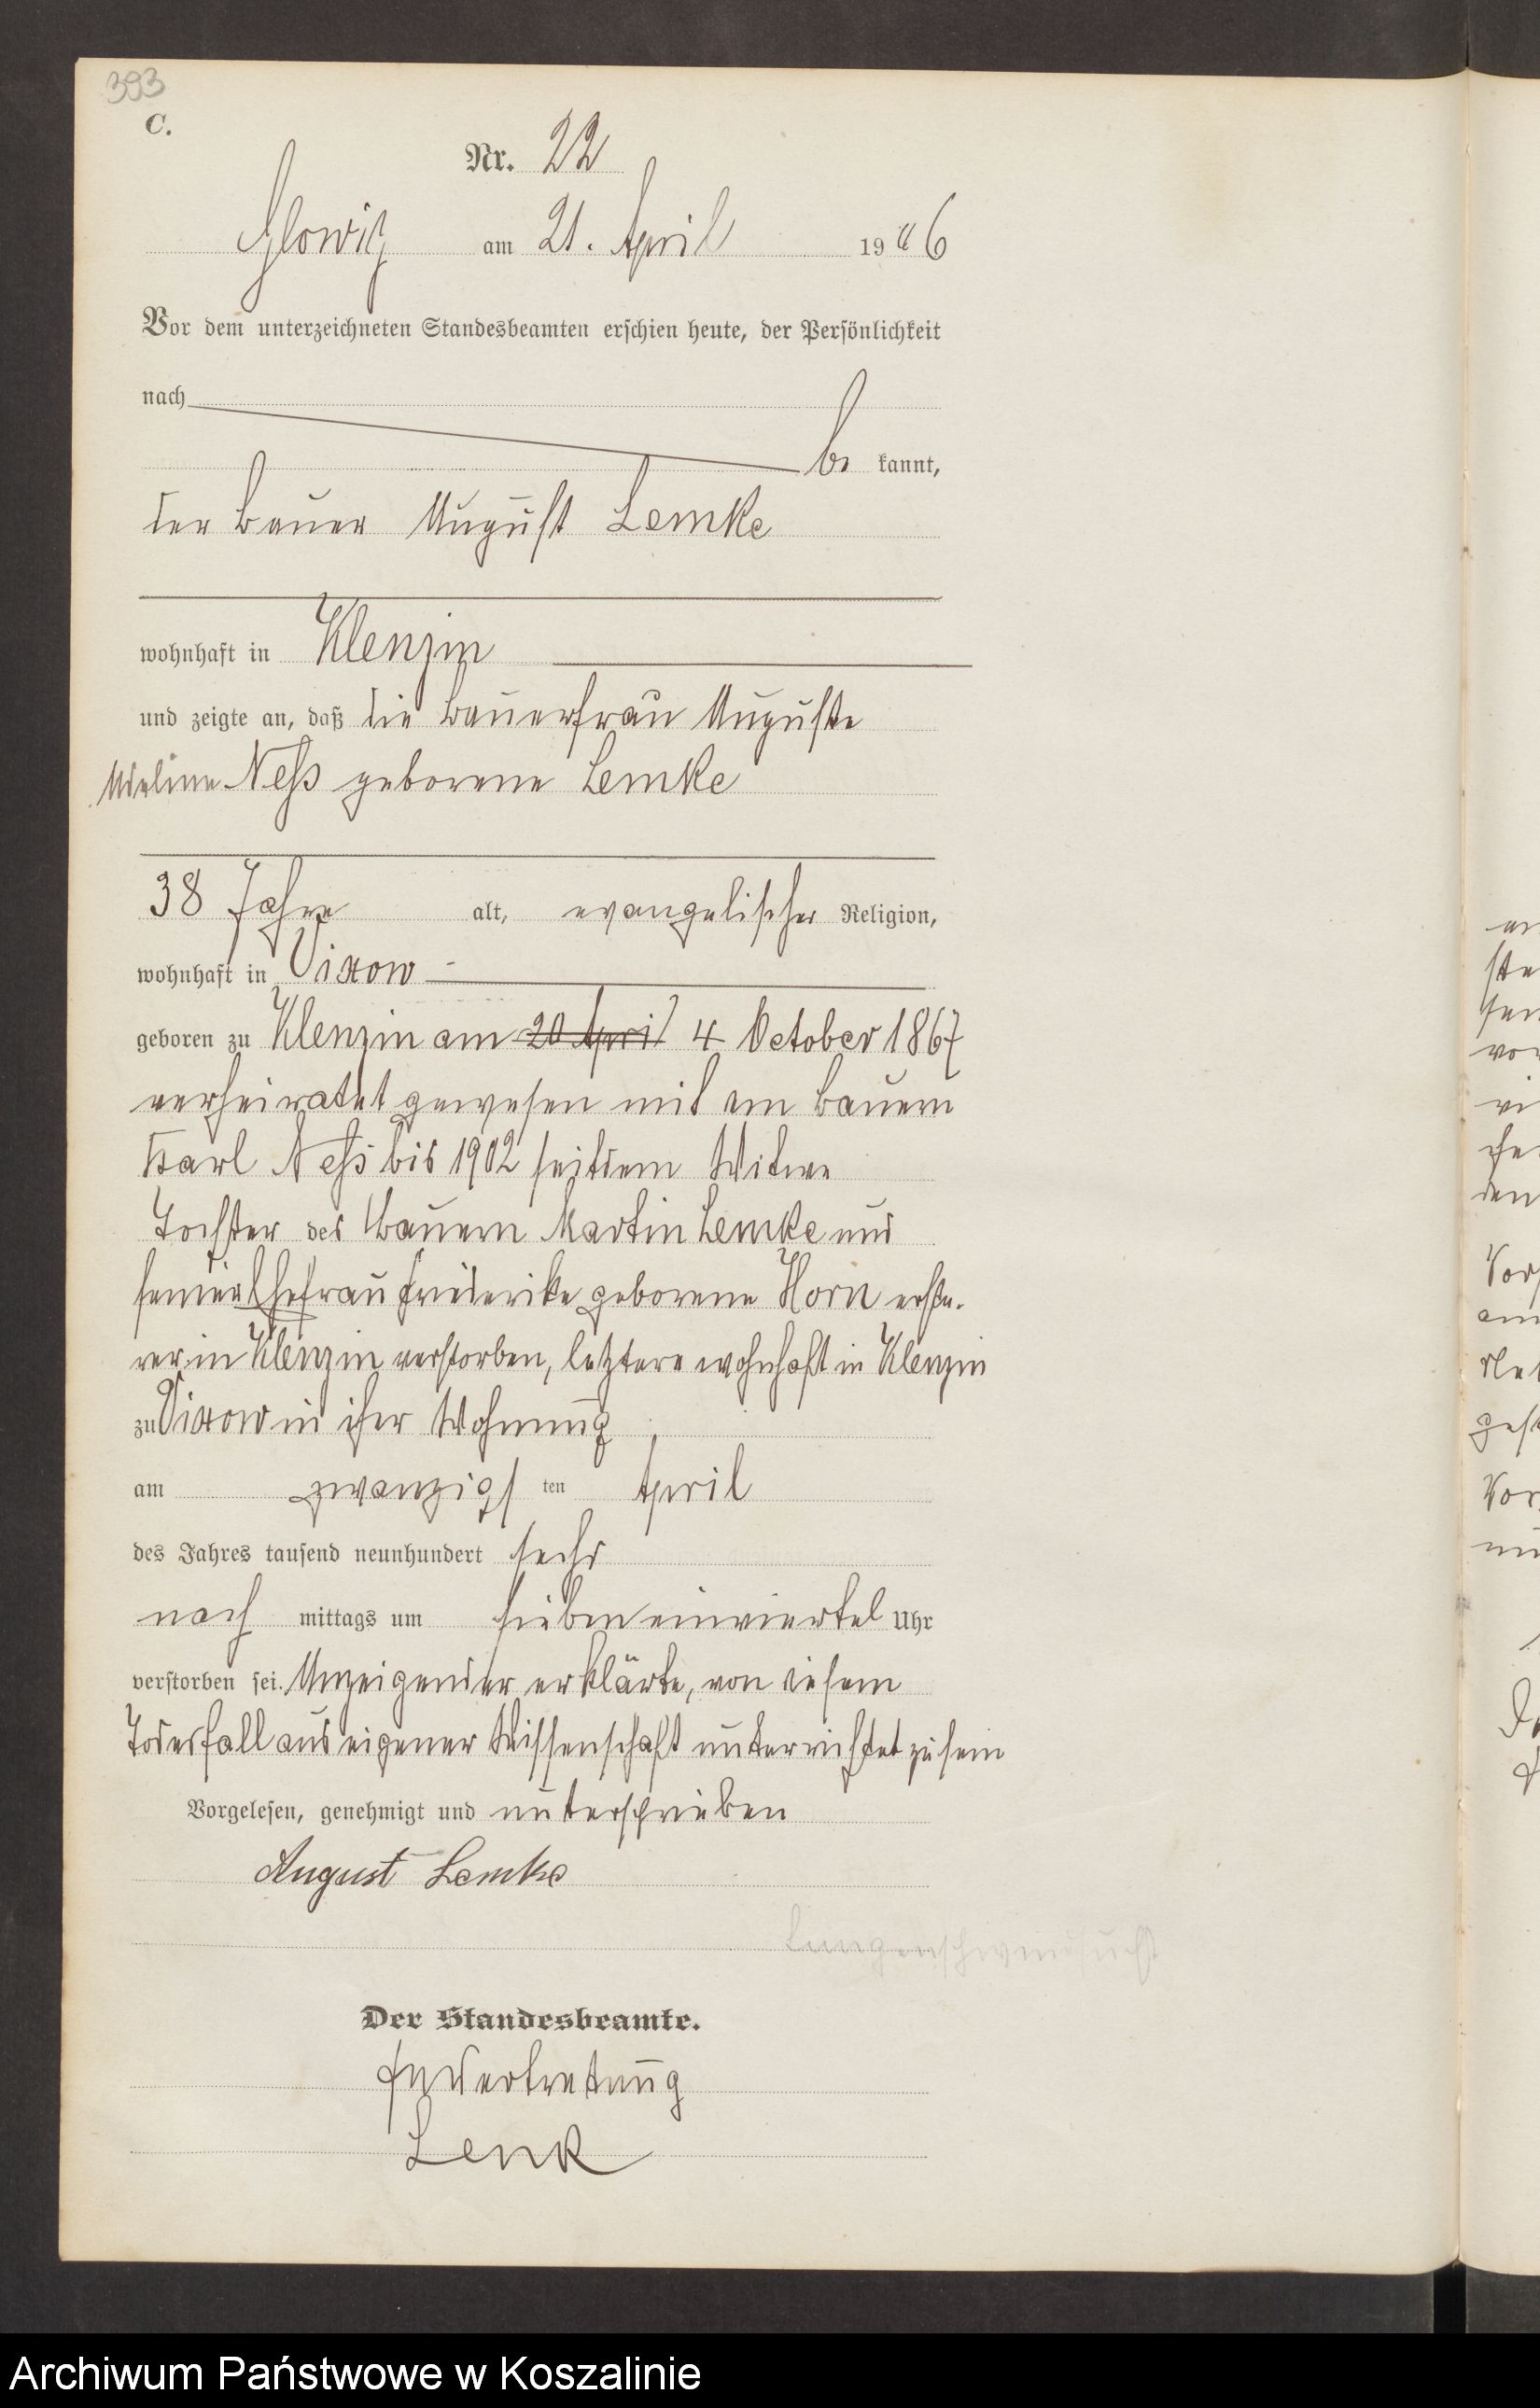 393
C.
Nr. 22
Glowitz am 21. April 1906
Vor dem unterzeichneten Standesbeamten erschien heute, der Persönlichkeit
nach
be kannt,
der Bauer August Lemke
wohnhaft in Klenzin
und zeigte an, daß die Bauerfrau Auguste
Adeline Neß geborene Lemke
38 Jahre alt, evangelischer Religion,
wohnhaft in Vixow
geboren zu Klenzin am 20 April 4 October 1867
verheiratet gewesen mit em Bauern
Karl Neß bis 1902 seitdem Witwe
Tochter des Bauern Martin Lemke und
seiner Ehefrau Friederike geborene Horn erste-
rer in Klenzin verstorben, letztere wohnhaft in Klenzin
zu Vixow in ihrer Wohnung
am zwanzigsten April
des Jahres tausend neunhundert sechs
nach mittags um sieben einviertel Uhr
verstorben sei. Anzeigender erklärte, von diesem
Todesfall aus eigener Wissenschaft unterrichtet zu sein
Vorgelesen, genehmigt und unterschrieben
August Lemke
Lungenschwindsucht
Der Standesbeamte.
In Vertretung
Lenk
Archiwum Państwowe w Koszalinie